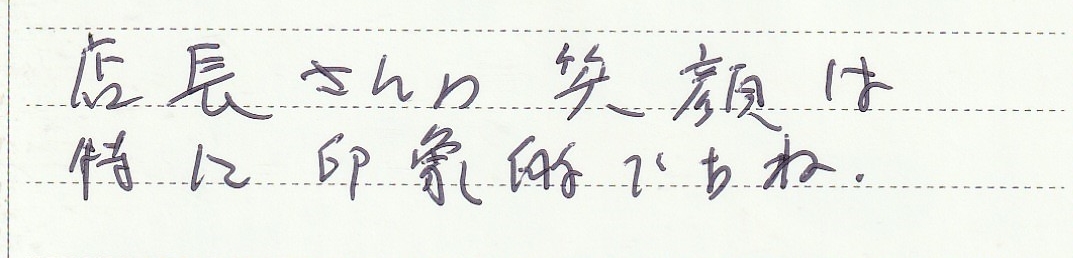 店長さんの笑顔は
特に印象的ですね.